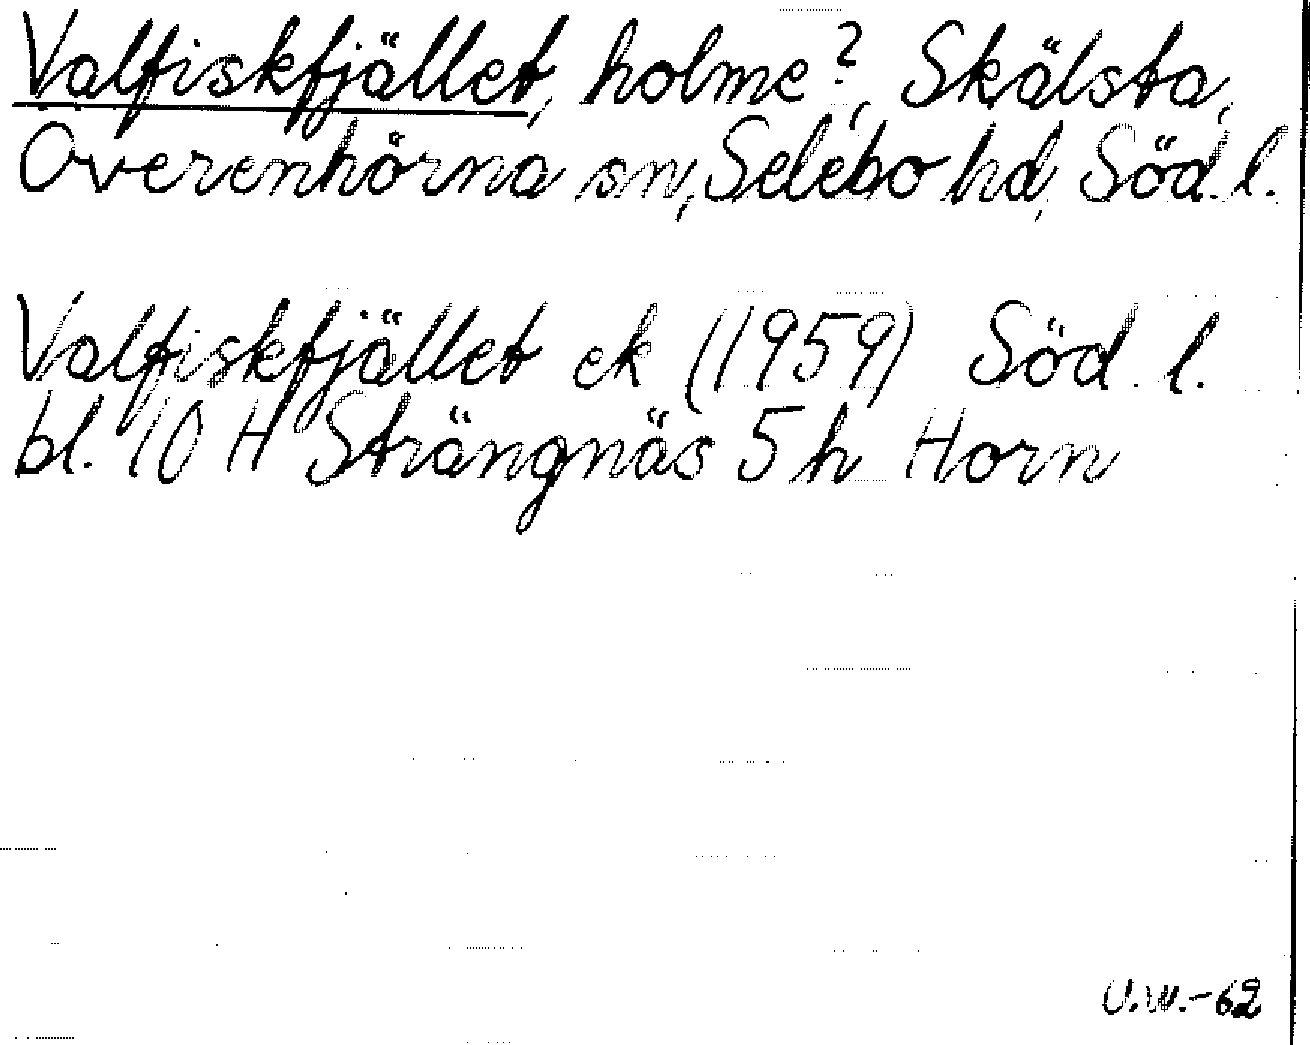 Valfiskfjället, holme?, Skälsta,
Överenhörna sn, Selebo hd, Söd. l.
Valfiskfjället ek (1959) Söd. l.
bl. 10 H Strängnäs 5 h Horn
U.W.-62